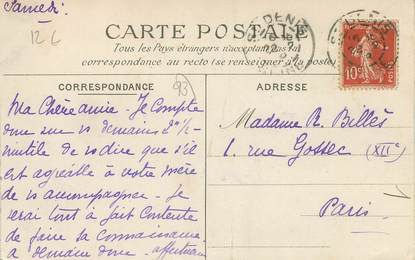 Samedi
12 6
CARTE POSTALE
Tous les Pays étrangers n'acceptent pas la
correspondance au recto (se renseigner à la poste)
CORRESPONDANCE
93
ADRESSE
Ma Chère amie - Je Compte
donc sur vs demain 2h ½
inutile de vs dire que s'il
est agréable à votre mère
de vs accompagner - Je
serai tout à fait contente
de faire la connaissance
a demain donc affectueu
Madame R. Bellès
1. rue Gossec (XIIe)
Paris
ST DENIS
10